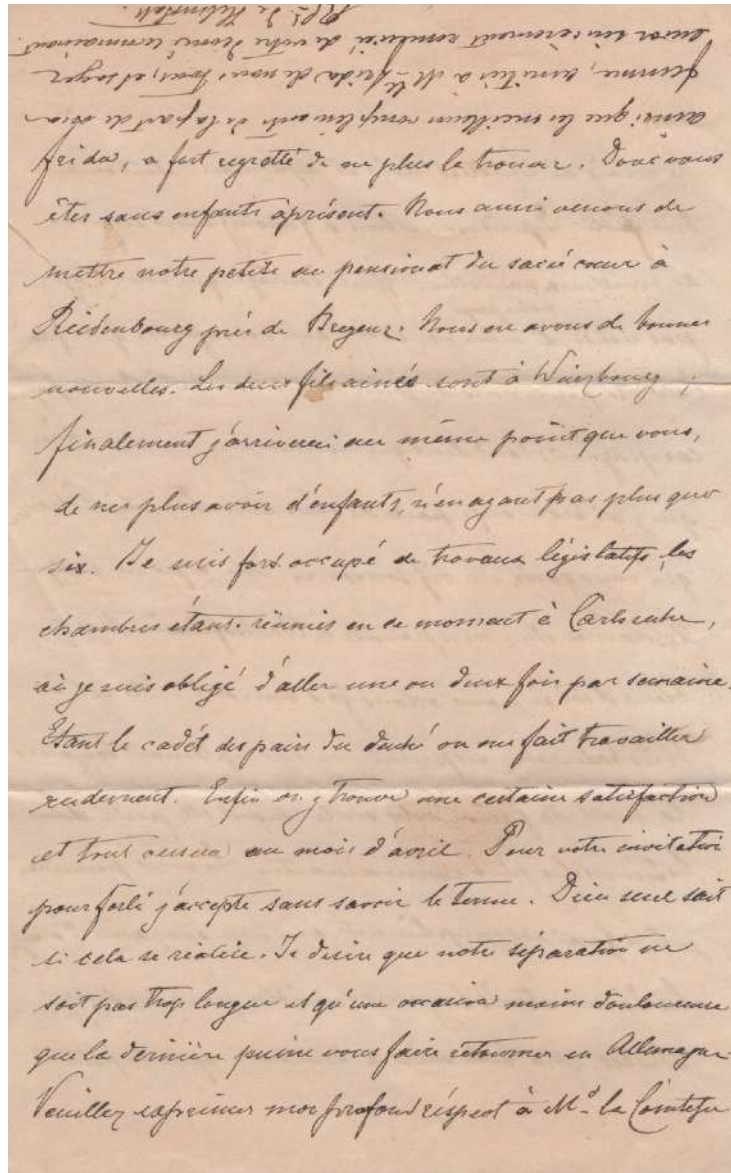 frida, a fort regretté de ne plus le trouver. Donc vous
êtes sans enfants àprésent. Nous aussi venons de
mettre notre petite au pensionat du sacré cœur à
Riedenbourg près de Bregenz. Nous en avons de bonnes
nouvelles. Les deux fils ainés sont à Würzbourg ;
finalement j'arriverai au même point que vous,
de ne plus avoir d'enfants, n'en ayant pas plus que
six. Je suis fort occupé de travaux législatifs, les
chambres étant réunies en ce moment à Carlsruhe,
où je suis obligé d'aller une ou deux fois par semaine.
Etant le cadét des pairs du duché on me fait travailler
rudement. Enfin on y trouve une certaine satisfaction
et tout cessera au mois d'avril. Pour votre invitation
pour Forli j'accepte sans savoir le terme. Dieu seul sait
si cela se réalise. Je désire que notre séparation ne
soit pas trop longue et qu'une occasion moins douloureuse
que la dernière puisse vous faire retourner en Allemagne.
Veuillez exprimer mon profond réspect à Md la Comtesse
ainsi que les meilleurs compliments de la part de ma
femme, amitiés à Mlle Frida de nous tous, et soyez
sincèrement de votre
de Helmstatt.